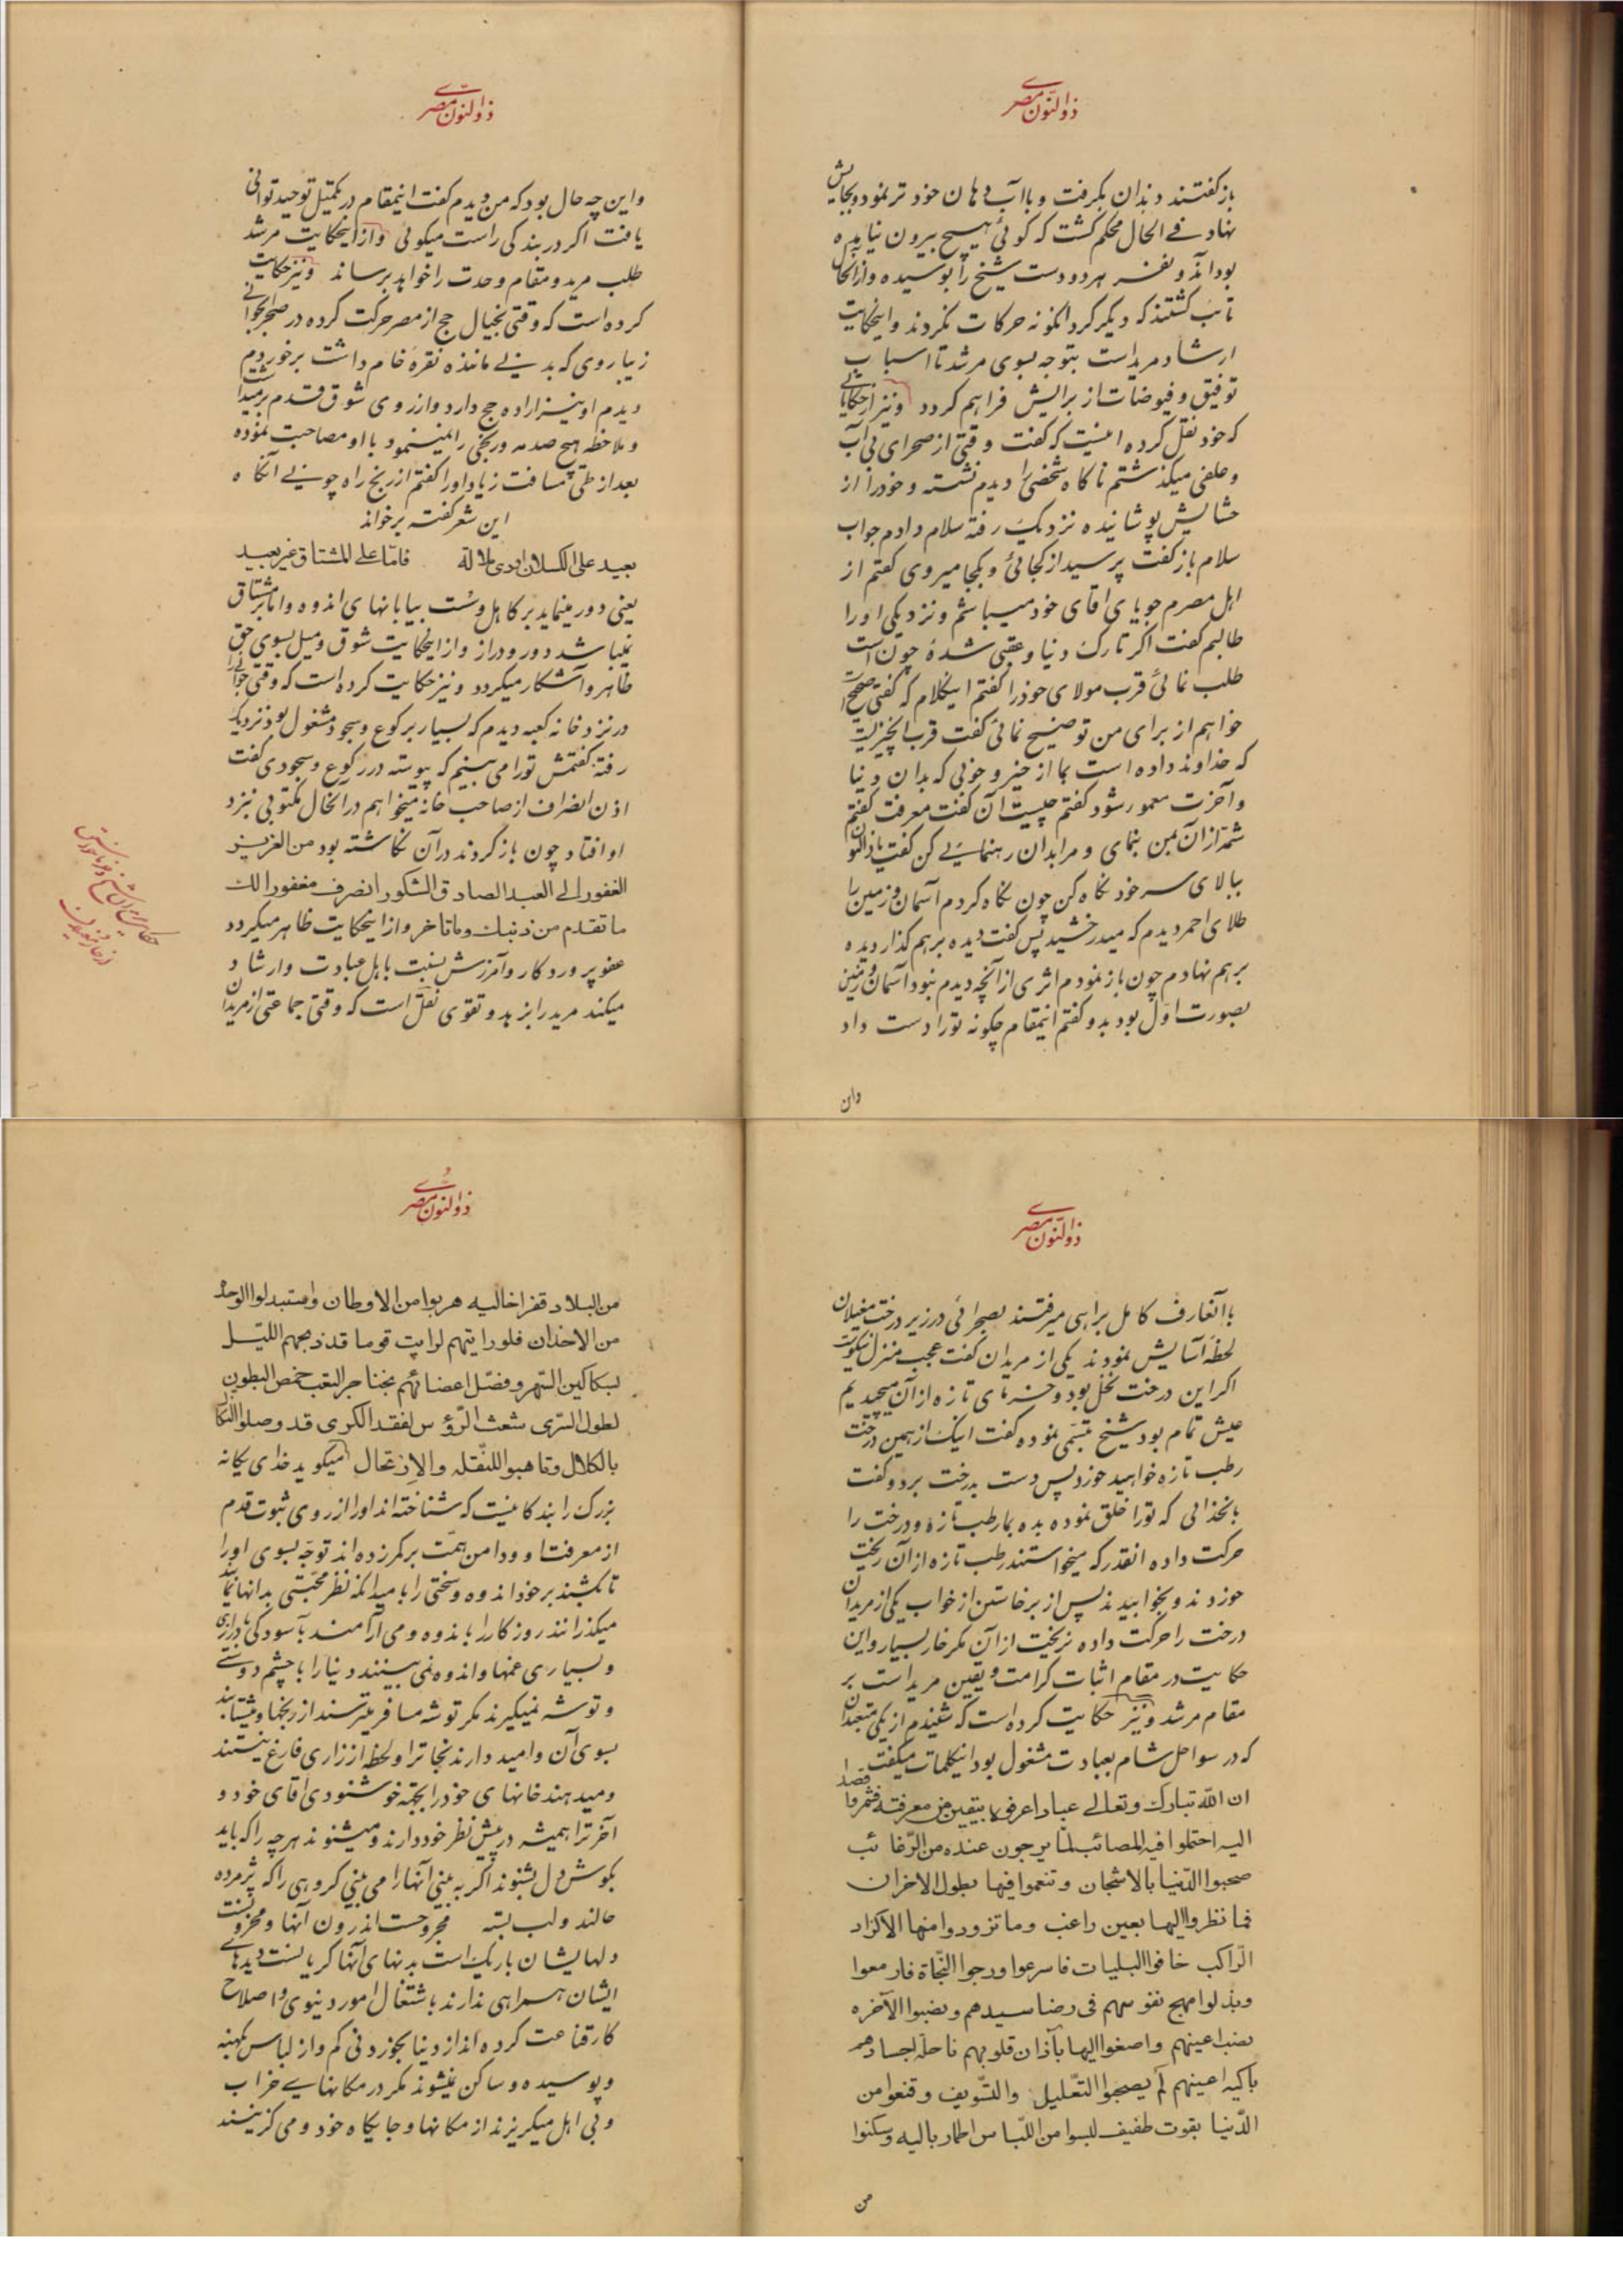 ذوالنّون مصری
باز گفتند دندان بگرفت و باآب دهان خود تر نمود و بجایش
نهاد فے الحال محکم گشت که گوئی هیچ بیرون نیامده
بود آنگه و نفر هر دو دست شیخ را بوسیده و از آنحال
تائب گشتند که دیگر گرد انگونه حرکات نگردند و اینحکایت
ارشاد مرید است بتوجه بسوی مرشد تا اسباب
توفیق و فیوضات از برایش فراهم گردد و نیز از حکایاتی
که خود نقل کرده اینست که گفت وقتی از صحرای بی آب
و علفی میگذشتم ناکاه شخصی را دیدم نشسته و خود را از
حشایش پوشانیده نزدیک رفته سلام دادم جواب
سلام باز گفت پرسید از کجائی و بکجا میروی گفتم از
اهل مصرم جویای اقای خود میباشم و نزدیکی او را
طالبم گفت اکر تارک دنیا و عقبی شدهٔ چون است
طلب نمائی قرب مولای خود را گفتم اینکلام که گفتی صحیح است
خواهم از برای من توضیح نمائی گفت قرب انچیزیست
که خداوند داده است بما از خیر و خوبی که بدان دنیا
و آخرت معمور شود گفتم چیست آن گفت معرفت گفتم
شمهٔ از آن بمن بنمای و مرا بدان رهنمایے کن گفت یا ذالنون
ببالای سر خود نکاه کن چون نکاه کردم آسمان و زمین را
طلای احمر دیدم که میدرخشید پس گفت دیده برهم گذار دیده
برهم نهادم چون باز نمودم اثری از آنچه دیدم نبود آسمان و زمین
بصورت اول بود بدو گفتم اینمقام چکونه تو را دست داد
وان
ذوالنّون مصری
و این چه حال بود که من دیدم گفت اینمقام در تکمیل توحید توانی
یافت اکر در بندگی راست میکوئی و از اینحکایت مرشد
طلب مرید و مقام وحدت را خواهد برساند و نیز حکایت
کرده است که وقتی بخیال حج از مصر حرکت کرده در صحرا بجوانی
زیباروی که بدنے مانند نقرهٔ خام داشت برخوردم
دیدم او نیز اراده حج دارد و از روی شوق قدم برمیداشت
و ملاحظه هیچ صدمه و رنجی را نمینمود با او مصاحبت نموده
بعد از طی مسافت زیاد او را گفتم از رنج راه چونے آنکاه
این شعر گفته برخواند
بعید علی الکسلان اودی ملالة فامّا علے المشتاق غیر بعید
یعنی دور مینماید بر کاهل و سُست بیابانهای اندوه و اما بر مشتاق
نمیباشد دور و دراز و از اینحکایت شوق و میل بسوی حق
ظاهر و آشکار میکردد و نیز حکایت کرده است که وقتی جوانی را
در نزد خانه کعبه دیدم که بسیار برکوع و سجود مشغول بود نزدیک
رفته گفتمش تو را می بینم که پیوسته در رکوع و سجودی گفت
اذن انصراف از صاحب خانه میخواهم در آنحال مکتوبی بنزد
او افتاد چون باز گردند در آن نکاشته بود من العزیز
الغفور الے العبد الصادق الشکور انصرف مغفورا لک
ما تقدم من ذنبک و ما تاخر و از اینحکایت ظاهر میکردد
عفو پروردکار و آمرزش بنسبت باهل عبادت و ارشاد
میکند مرید را بزهد و تقوی نقل است که وقتی جماعتی از مریدان
ذوالنّون مصری
با آنعارف کامل براهی میرفتند بصحرائی در زیر درخت مغیلان
لحظهٔ آسایش نمودند یکی از مریدان گفت عجب منزل نیکوئیست
اکر این درخت نخل بود و خرمای تازه از آن میچیدیم
عیش تمام بود شیخ تبسّمی نموده گفت اینک از همین درخت
رطب تازه خواهید خورد پس دست بدرخت برد و گفت
بانخدائی که تو را خلق نموده بده بما رطب تازه و درخت را
حرکت داده انقدر که میخواستند رطب تازه از آن ریخت
خوردند و بخوابیدند پس از برخاستن از خواب یکی از مریدان
درخت را حرکت داده نریخت از آن مکر خار بسیار و این
حکایت در مقام اثبات کرامت و یقین مرید است بر
مقام مرشد و نیز حکایت کرده است که شنیدم از یکی متعبدان
که در سواحل شام بعبادت مشغول بود اینکلمات میکفت
ان الله تبارک و تعالے عبادا عرفوه بیقین من معرفته فشمروا قصدا
الیه احتملوا فیه المصائب لما یرجون عنده من الرّغائب
صحبوا الدّنیا بالاشجان و تنعموا فیها بطول الاحزان
فما نظروا الیها بعین راغب و ما تزودوا منها الا کزاد
الرّاکب خافوا البلیات فاسرعوا و رجوا النّجاة فازمعوا
و بذلوا مهج نفوسهم فی رضا سیدهم و نصبوا الآخره
نصب اعینهم و اصغوا الیها بآذان قلوبهم ناحلة اجسادهم
باکیه اعینهم لم یصحبوا التّعلیل والتّسویف و قنعوا من
الدّنیا بقوت طفیف لبسوا من اللّباس اطمار بالیه و سکنوا
من
ذوالنّون مصری
من البلاد قفرا خالیه هربوا من الاوطان و استبدلوا الوحدة
من الاخدان فلو رایتهم لرایت قوما قد ذبحهم اللیّل
بسکاکین السّهر و فصّل اعضائهم بخناجر التعب خمص البطون
لطول السّری شعث الرّؤس لفقد الکری قد وصلوا الکلال
بالکلال و تاهبوا للنّقله والارتحال میکوید خدای یکانه
بزرک را بندکانیست که شناخته اند او را از روی ثبوت قدم
از معرفت او و دامن همّت برکمر زده اند توجّه بسوی او را
تا بکشند بر خود اندوه و سختی را بامید انکه نظر محبّتی بدانها نماید
میکذرانند روزکار را باندوه و می آرامند بآسودکی بادرازی
و بسیاری غمها و اندوه نمی بینند دنیا را با چشم دوستے
و توشه نمیکیرند مکر توشه مسافر میترسند از رنجها و میشتابند
بسوی آن و امید دارند نجات را و لحظهٔ از زاری فارغ نیستند
و میدهند خانهای خود را بجهة خوشنودی اقای خود و
آخرت را همیشه در پیش نظر خود دارند و میشنوند هر چه را که باید
بکوش دل بشنوند اکر به بینی آنها را می بینی کروهی را که پژمرده
حالند و لب بسته مجروحست اندرون آنها و محزونست
دلهایشان باریک است بدنهای آنها کریانست دیدهاے
ایشان همراهی ندارند باشتغال امور دنیوی و اصلاح
کار قناعت کرده اند از دنیا بخوردنی کم و از لباس کهنه
و پوسیده و ساکن نمیشوند مکر در مکانهایے خراب
و بی اهل میکریزند از مکانها و جایکاه خود و می کزینند